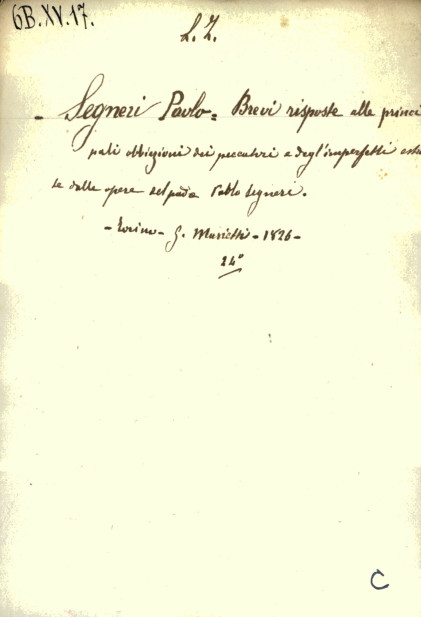 6B.XV.17.
L. Z.
- Segneri Paolo = Brevi risposte alle princi
pali obbiezioni dei peccatori e degl'imperfetti estrat
te dalle opere del padre Paolo Segneri.
- Torino - G. Marietti - 1826 -
24°
C